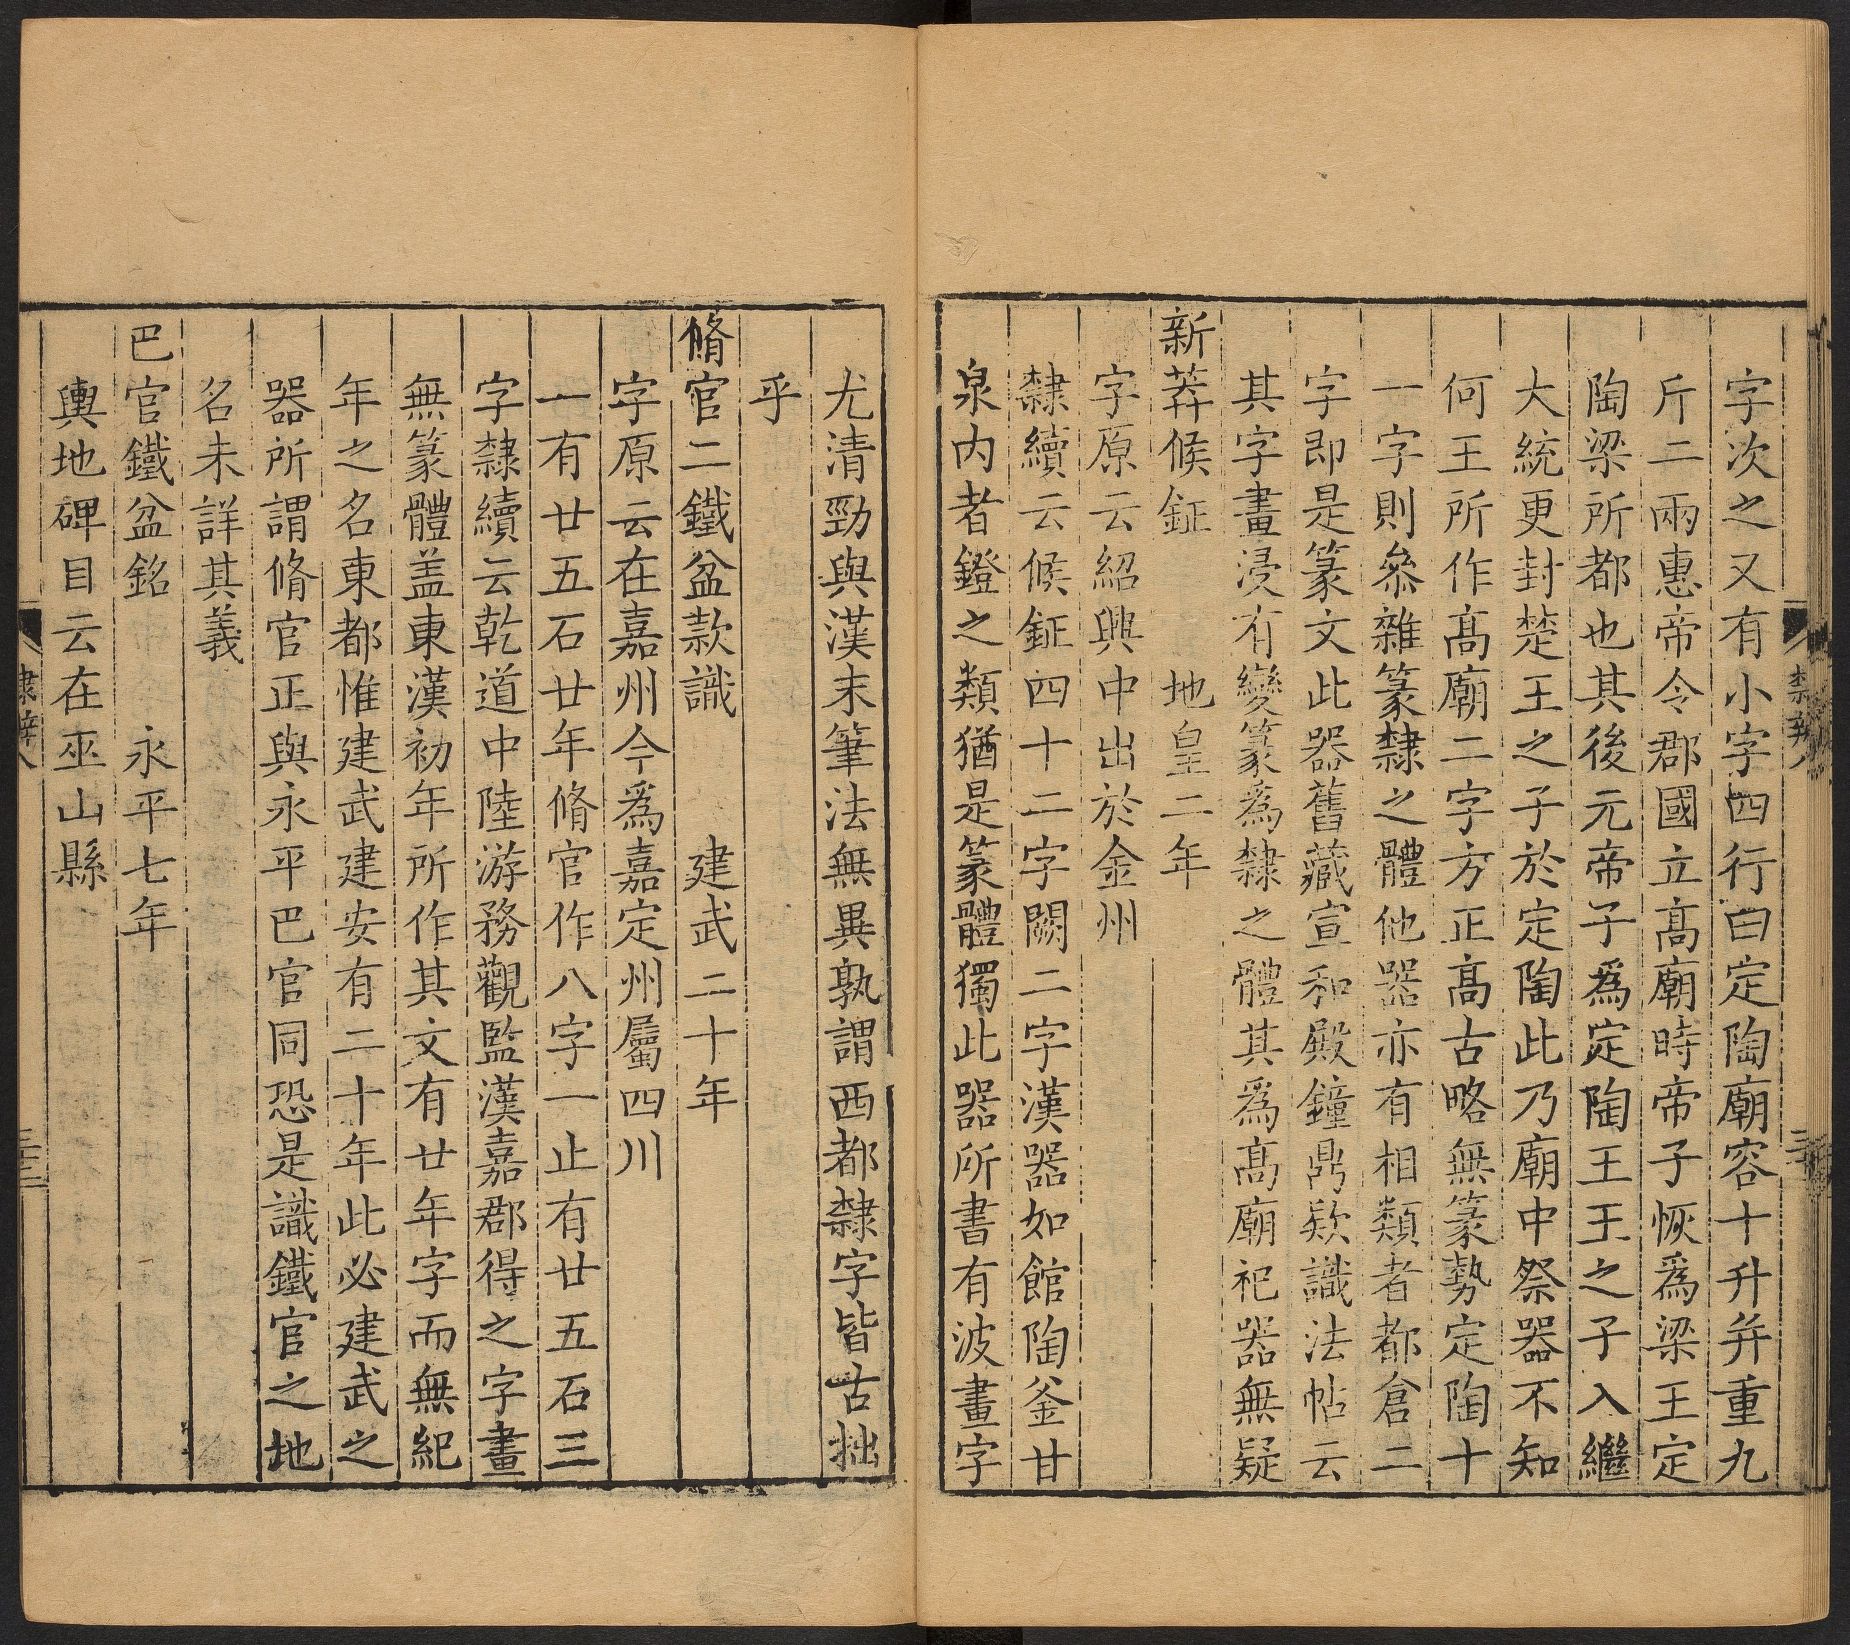 字次之又有小字四行曰定陶廟容十升并重九
斤二兩惠帝令郡國立髙廟時帝子恢爲梁王定
陶梁所都也其後元帝子爲定陶王王之子入繼
大統更封楚王之子於定陶此乃廟中祭器不知
何王所作髙廟二字方正髙古略無篆勢定陶十
一字則叅雜篆隸之體他器亦有相類者都倉二
字即是篆文此器舊藏宣和殿鐘鼎欵識法帖云
其字畫浸有變篆爲隸之體其爲髙廟祀器無疑
新莽候鉦　地皇二年
字原云紹興中出於金州
隸續云候鉦四十二字闕二字漢器如館陶釜甘
泉内者鐙之類猶是篆體獨此器所書有波畫字
尤清勁與漢末筆法無異孰謂西都隸字皆古拙
乎
脩官二鐵盆款識　建武二十年
字原云在嘉州今爲嘉定州屬四川
一有廿五石廿年脩官作八字一止有廿五石三
字隸續云乾道中陸游務觀監漢嘉郡得之字畫
無篆體盖東漢初年所作其文有廿年字而無紀
年之名東都惟建武建安有二十年此必建武之
器所謂脩官正與永平巴官同恐是識鐵官之地
名未詳其義
巴官鐵盆銘　永平七年
輿地碑目云在巫山縣
隸辨八